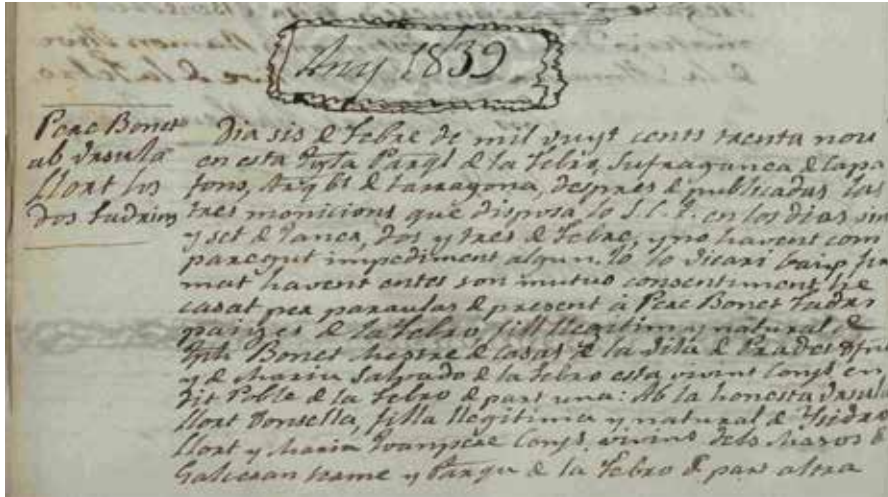 Any 1839
Pere Bonet
ab Ursula
Llort los
dos fadrins
Dia sis d Febre de mil vuyt cents trenta nou
en esta Igla Parql de la Febro, sufraganea d Capa
fons, Arqbt d Tarragona, despres d publicadas las
tres monicions que disposa lo S. C. T. en los dias sinc
y set d Janer, dos y tres d Febre, y no havent com
paregut impediment algun. Jo lo Vicari baix fir
mat havent entes son mutuo consentiment he
casat per paraulas d present à Pere Bonet Fadri
paijes d la Febro fill llegitim y natural d
Jph Bonet Mestre d casas d la Vila d Prades
y d Maria Salvado d la Febro esta vivint Conjs en
dit Poble d la Febro d part una: Ab la honesta Ursula
Llort Donsella, filla llegitima y natural d Ysidro
Llort y Maria Juanpere Conjs vivins dels Masos d
Galceran terme y Parqa d la Febro d part altra